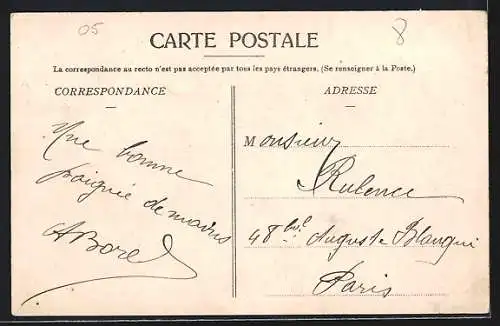 05
8
CARTE POSTALE
La correspondance au recto n'est pas acceptée par tous les pays étrangers. (Se renseigner à la Poste.)
CORRESPONDANCE
Une bonne
poignée de mains
ABorel
ADRESSE
Monsieur
Rulence
48 bvd Auguste Blanqui
Paris